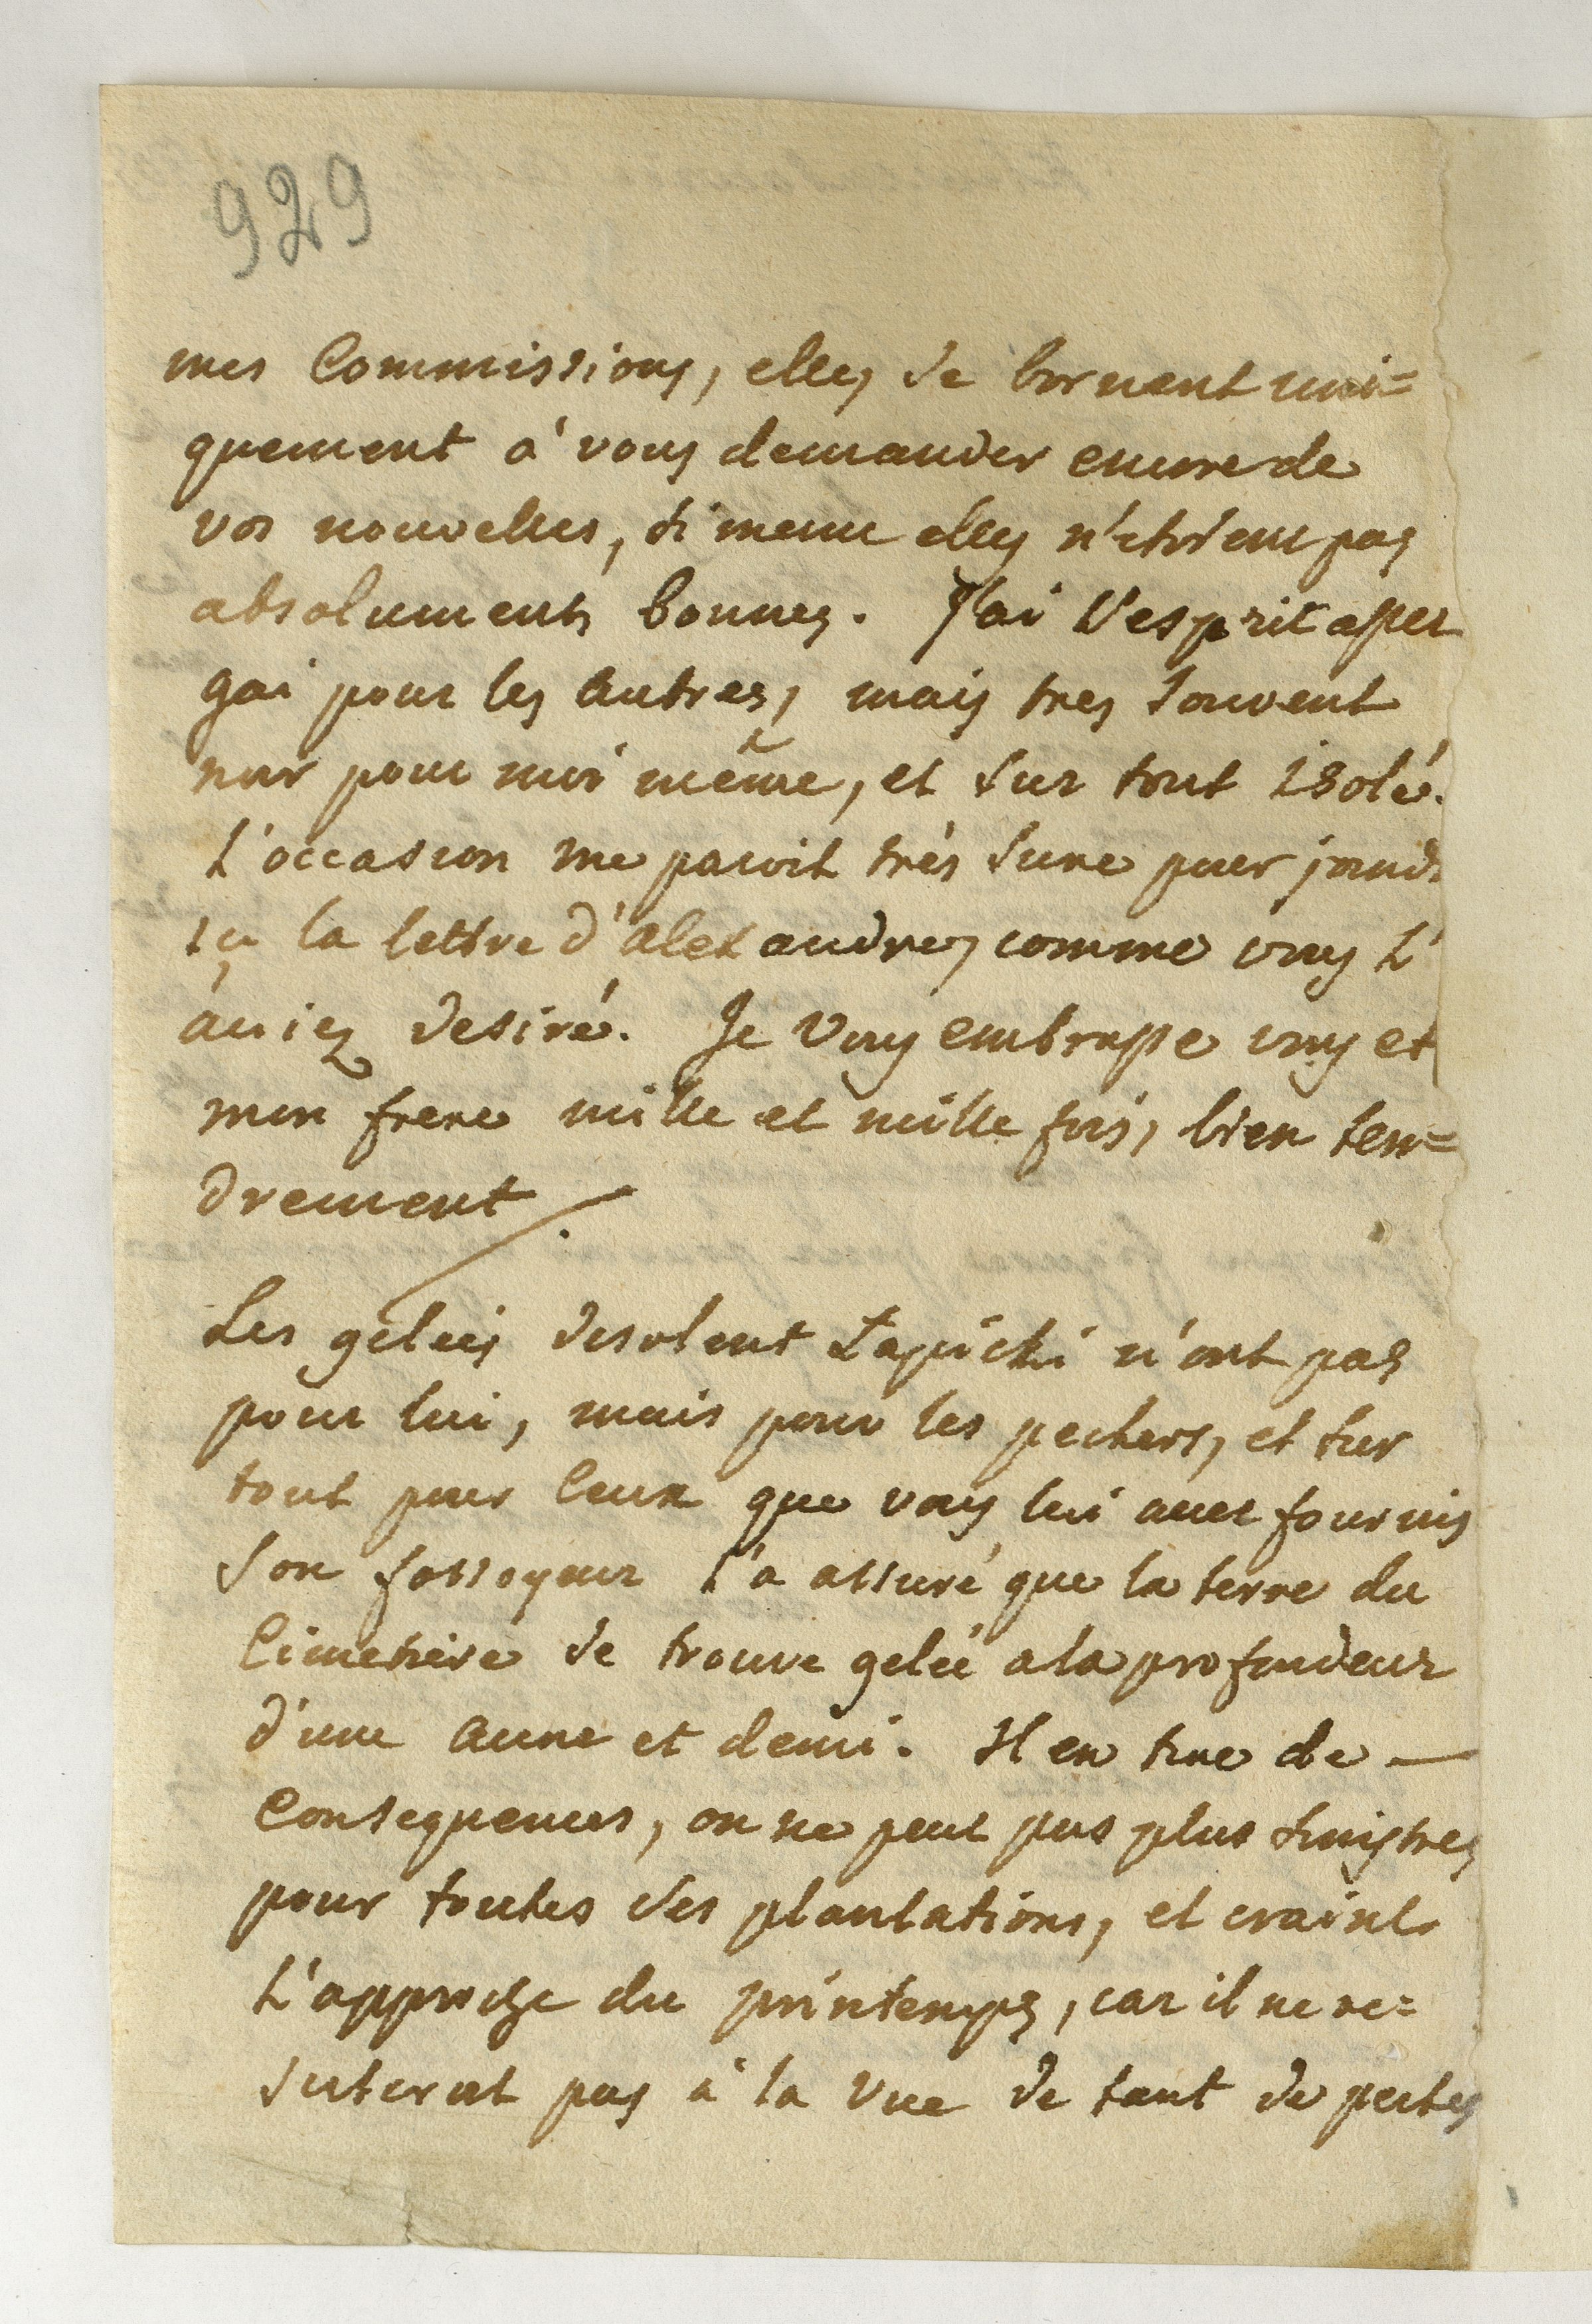 929
mes Commissions, elles se bornent uni=
quement a' vous demander encore de
vos nouvelles, si meme elles n'etoient pas
absolument bonnes. J'ai l'esprit assez
gai pour les autres, mais tres souvent
noir pour moi même, et sur tout isolé.
L'occasion me paroit très sure pour joind.
ici la lettre d'alexandre, comme vous l'
aviez desiré. Je vous embrasse vous et
mon frere mille et mille fois, bien ten=
drement.
Les gelées desolent n'ont pas
pour lui, mais pour les pechers, et sur
tout pour ceux que vous lui avez fournis
son fossoyeur l'a assuré que la terre du
Cimetiere se trouve gelée a la profondeur
d'une aune et demi. Il en tire de —
Consequences, on ne peut pas plus sinistres
pour toutes ses plantations, et craint
l'approche du printemps, car il ne re=
sisterat pas à la vue de tant de pertes